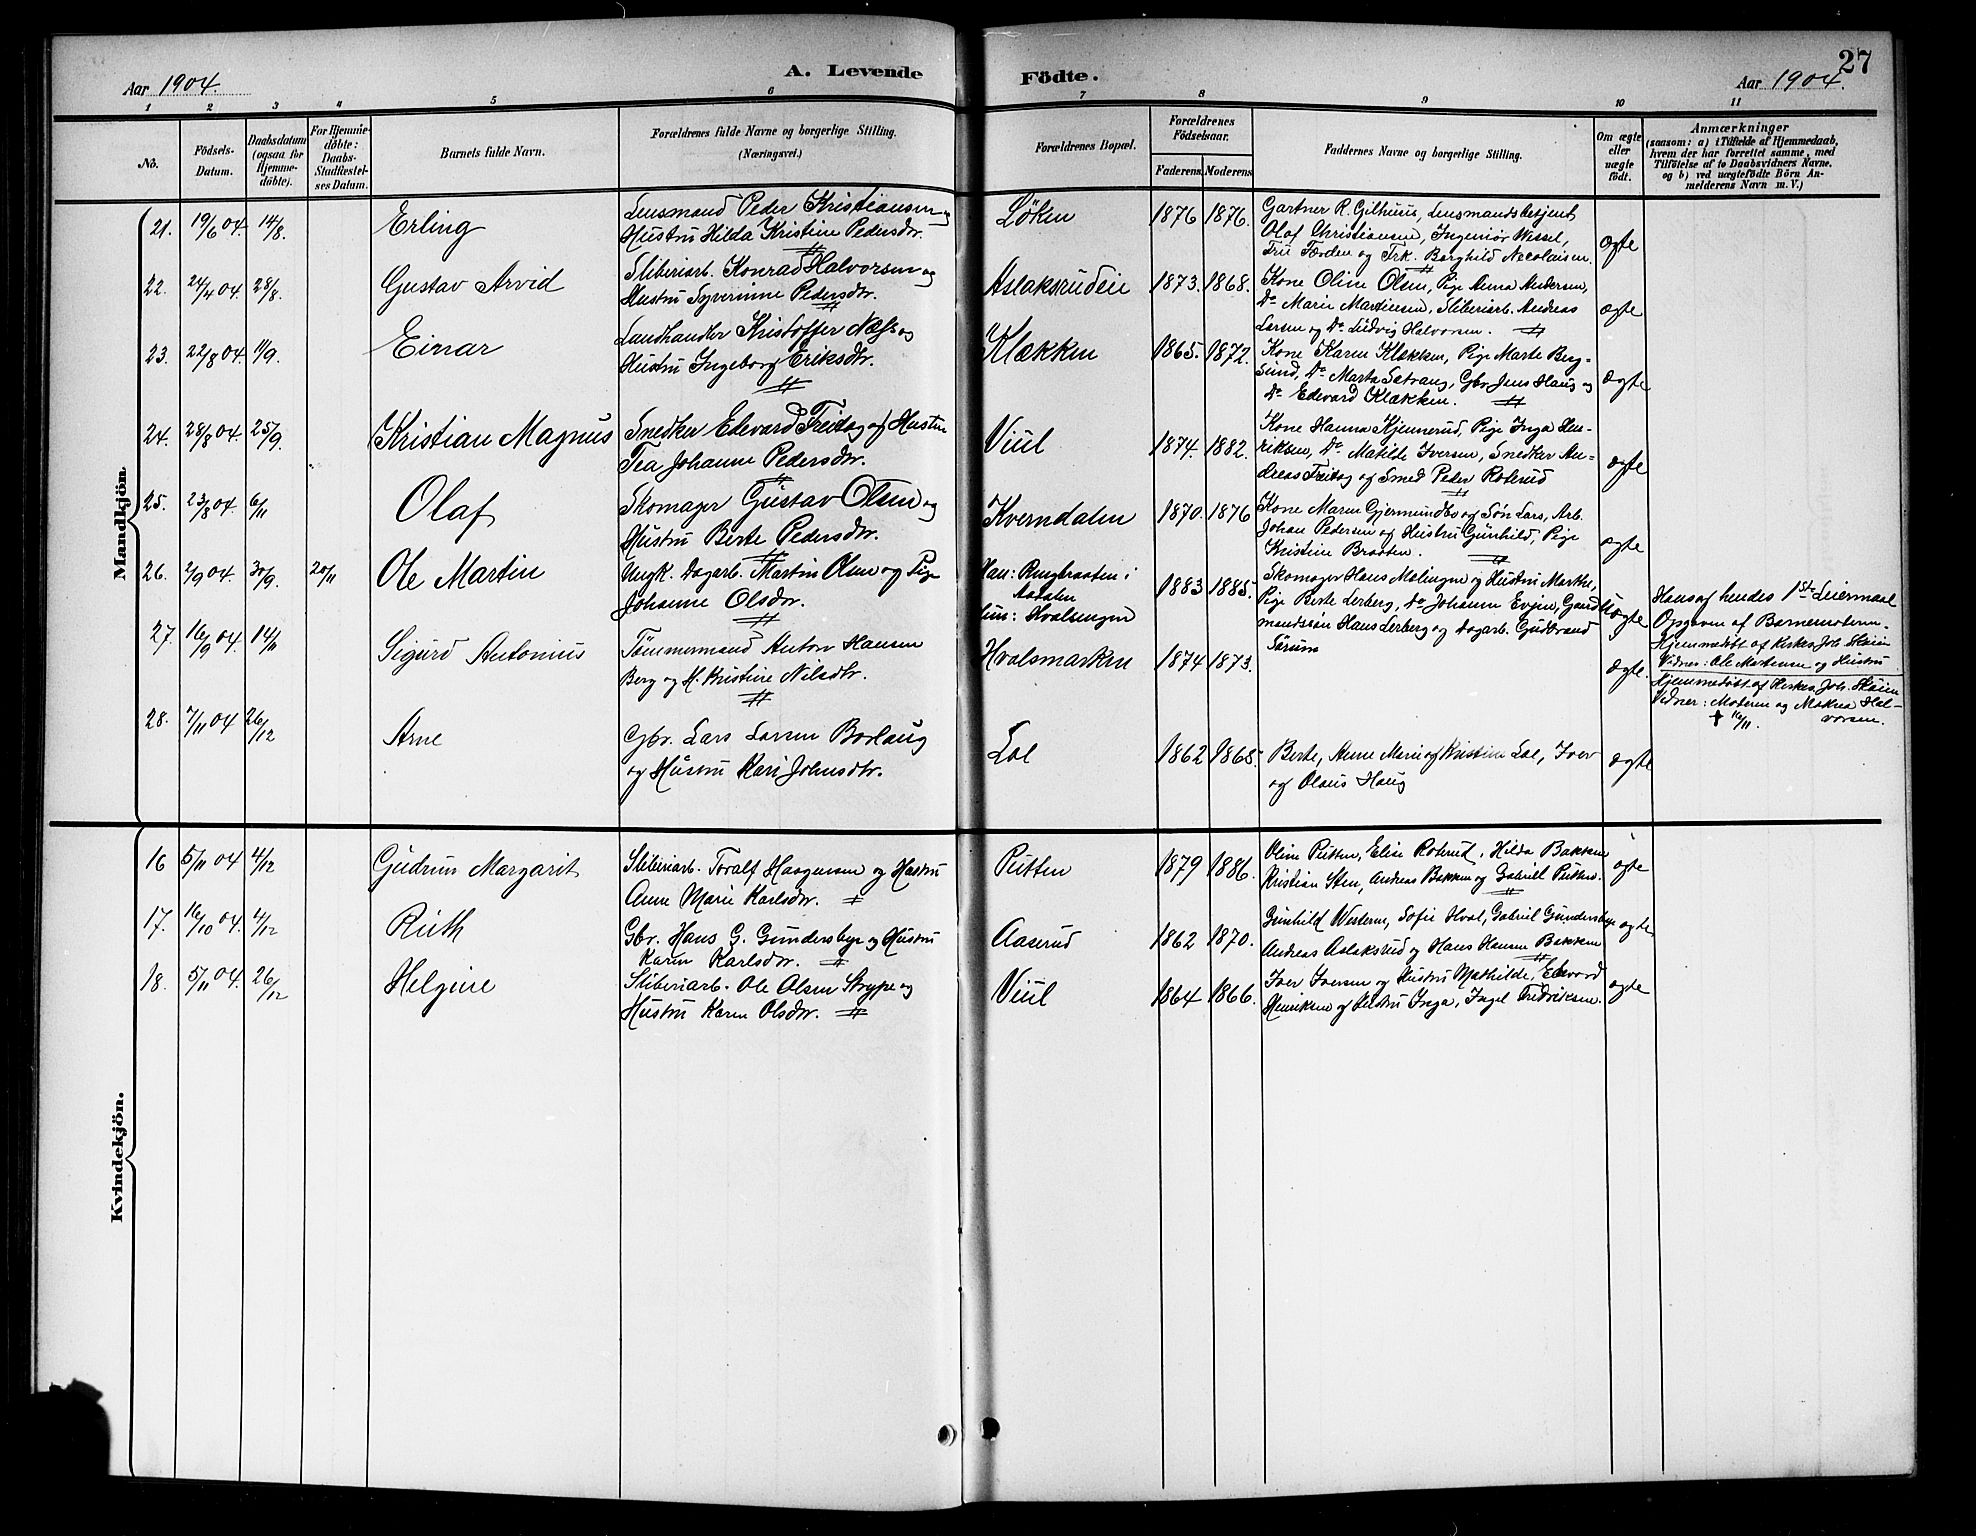 27
A. Levende Födte.
Aar 1904.
Aar 1904.
1 2 3 4 5 6 7 8 9 10 11
No.
Födsels-Datum.
Daabsdatum (ogsaa for Hjemmedöbte).
For Hjemmedöbte: Daabs-Stadfæstelses Datum.
Barnets fulde Navn.
Forældrenes fulde Navne og borgerlige Stilling. (Næringsvei.)
Forældrenes Bopæl.
Forældrenes Födselsaar.
Faderens Moderens
Faddernes Navne og borgerlige Stilling.
Om ægte eller uægte födt.
Anmærkninger
(saasom: a) i Tilfælde af Hjemmedaab, hvem der har forrettet samme, med Tilföielse af to Daabsvidners Navne, og b) ved uægtefödte Börn Anmelderens Navn m. V.)
Mandkjön.
21. 19/6 04. 14/8. Erling
Lensmand Peder Kristiansen og
Hustru Hilda Kristine Pedersdtr.
Löken 1876 1876.
Gartner R. Gilhuus, Lensmandsbetjent
Olaf Christiansen, Ingeniør Wessel,
Fru Færden og Frk. Borghild Nicolaisen.
ægte
22. 24/4 04. 28/8. Gustav Arvid
Sliberiarb. Konrad Halvorsen og
Hustru Syverinne Pedersdtr.
Aslaksrudeie 1873. 1868.
Kone Oline Olsen, Pige Anna Andersen,
Do Marie Martinsen, Sliberiarb. Andreas
Larsen og Do Ludvig Halvorsen.
ægte
23. 22/8 04. 11/9. Einar
Landhandler Kristoffer Næss og
Hustru Ingeborg Eriksdtr.
Klækken 1865. 1872.
Kone Karen Klækken, Pige Marte Berg-
sund, Do Marta Sætrang, Gbr. Jens Haug og
Do Edevard Klækken.
ægte
24. 28/8 04. 25/9. Kristian Magnus
Snedker Edevard Freitag og Hustru
Tea Johanne Pedersdtr.
Viul 1874. 1882.
Kone Hanna Kjennerud, Pige Inga Hen-
riksen, Do Matilde Iversen, Snedker An-
dreas Freitag og Smed Peder Roterud
ægte
25. 23/8 04. 6/11 Olaf
Skomager Gustav Olsen og
Hustru Berte Pedersdtr.
Kverndalen 1870. 1876
Kone Maren Gjermundbo og Søn Lars, Arb.
Johan Pedersen og Hustru Gunhild, Pige
Kristine Braaten.
ægte
26. 2/9 04. 30/9. 20/11 Ole Martin
Ungk. Dagarb. Martin Olsen og Pige
Johanne Olsdtr.
Han: Ringbraaten i
Aadalen
Hun: Hvalsengen
1883 1885.
Skomager Hans Malingen og Hustru Marthe,
Pige Berte Lerberg, Do Johanne Evjen, Gaard
mandssøn Hans Lerberg og Dagarb. Gudbrand
Tørum
Uægte
Hans af hendes 1ste Leiermaal
Opgiven af Barnemoderen.
Hjemmedöbt af Kirkes. Joh. Skøien
Vidner: Ole Mortensen og Hustru
27. 16/9 04. 14/11 Sigurd Antonius
Tømmermand Anton Hansen
Berg og H. Kristine Nilsdtr.
Hvalsmarken 1874 1873.
ægte.
Hjemmedöbt af Kirkes. Joh. Skøien
Vidner: Moderen og Makrea Hal-
vorsen.
+ 16/11.
28. 7/11 04 26/12 Arne
Gbr. Lars Larsen Borlaug
og Hustru Kari Johnsdtr.
Loe 1862 1865.
Berte, Anne Marie og Kristine Loe, Iver
og Olaus Haug
ægte
Kvindekjön.
16 5/11 04 4/12 Gudrun Margarit
Sliberiarb. Toralf Haagensen og Hustru
Anne Marie Karlsdtr.
Putten 1879 1886.
Oline Putten, Elise Roterud, Hilda Bakken
Kristian Sten, Andreas Bakken og Gabriel Putten.
ægte
17. 16/10 04. 4/12 Ruth
Gbr. Hans G. Gundersbye og Hustru
Karen Karlsdtr.
Aaserud 1862 1870.
Gunhild Western, Sofie Hval, Gabriel Gundersbye
Andreas Aslaksrud og Hans Hansen Bakken
ægte
18. 5/11 04. 26/12 Helgine
Sliberiarb. Ole Olsen Strype og
Hustru Karen Olsdtr.
Viul 1864 1866.
Iver Iversen og Hustru Mathilde, Edevard
Henriksen og Hustru Inga, Ingel Fredriksen.
ægte